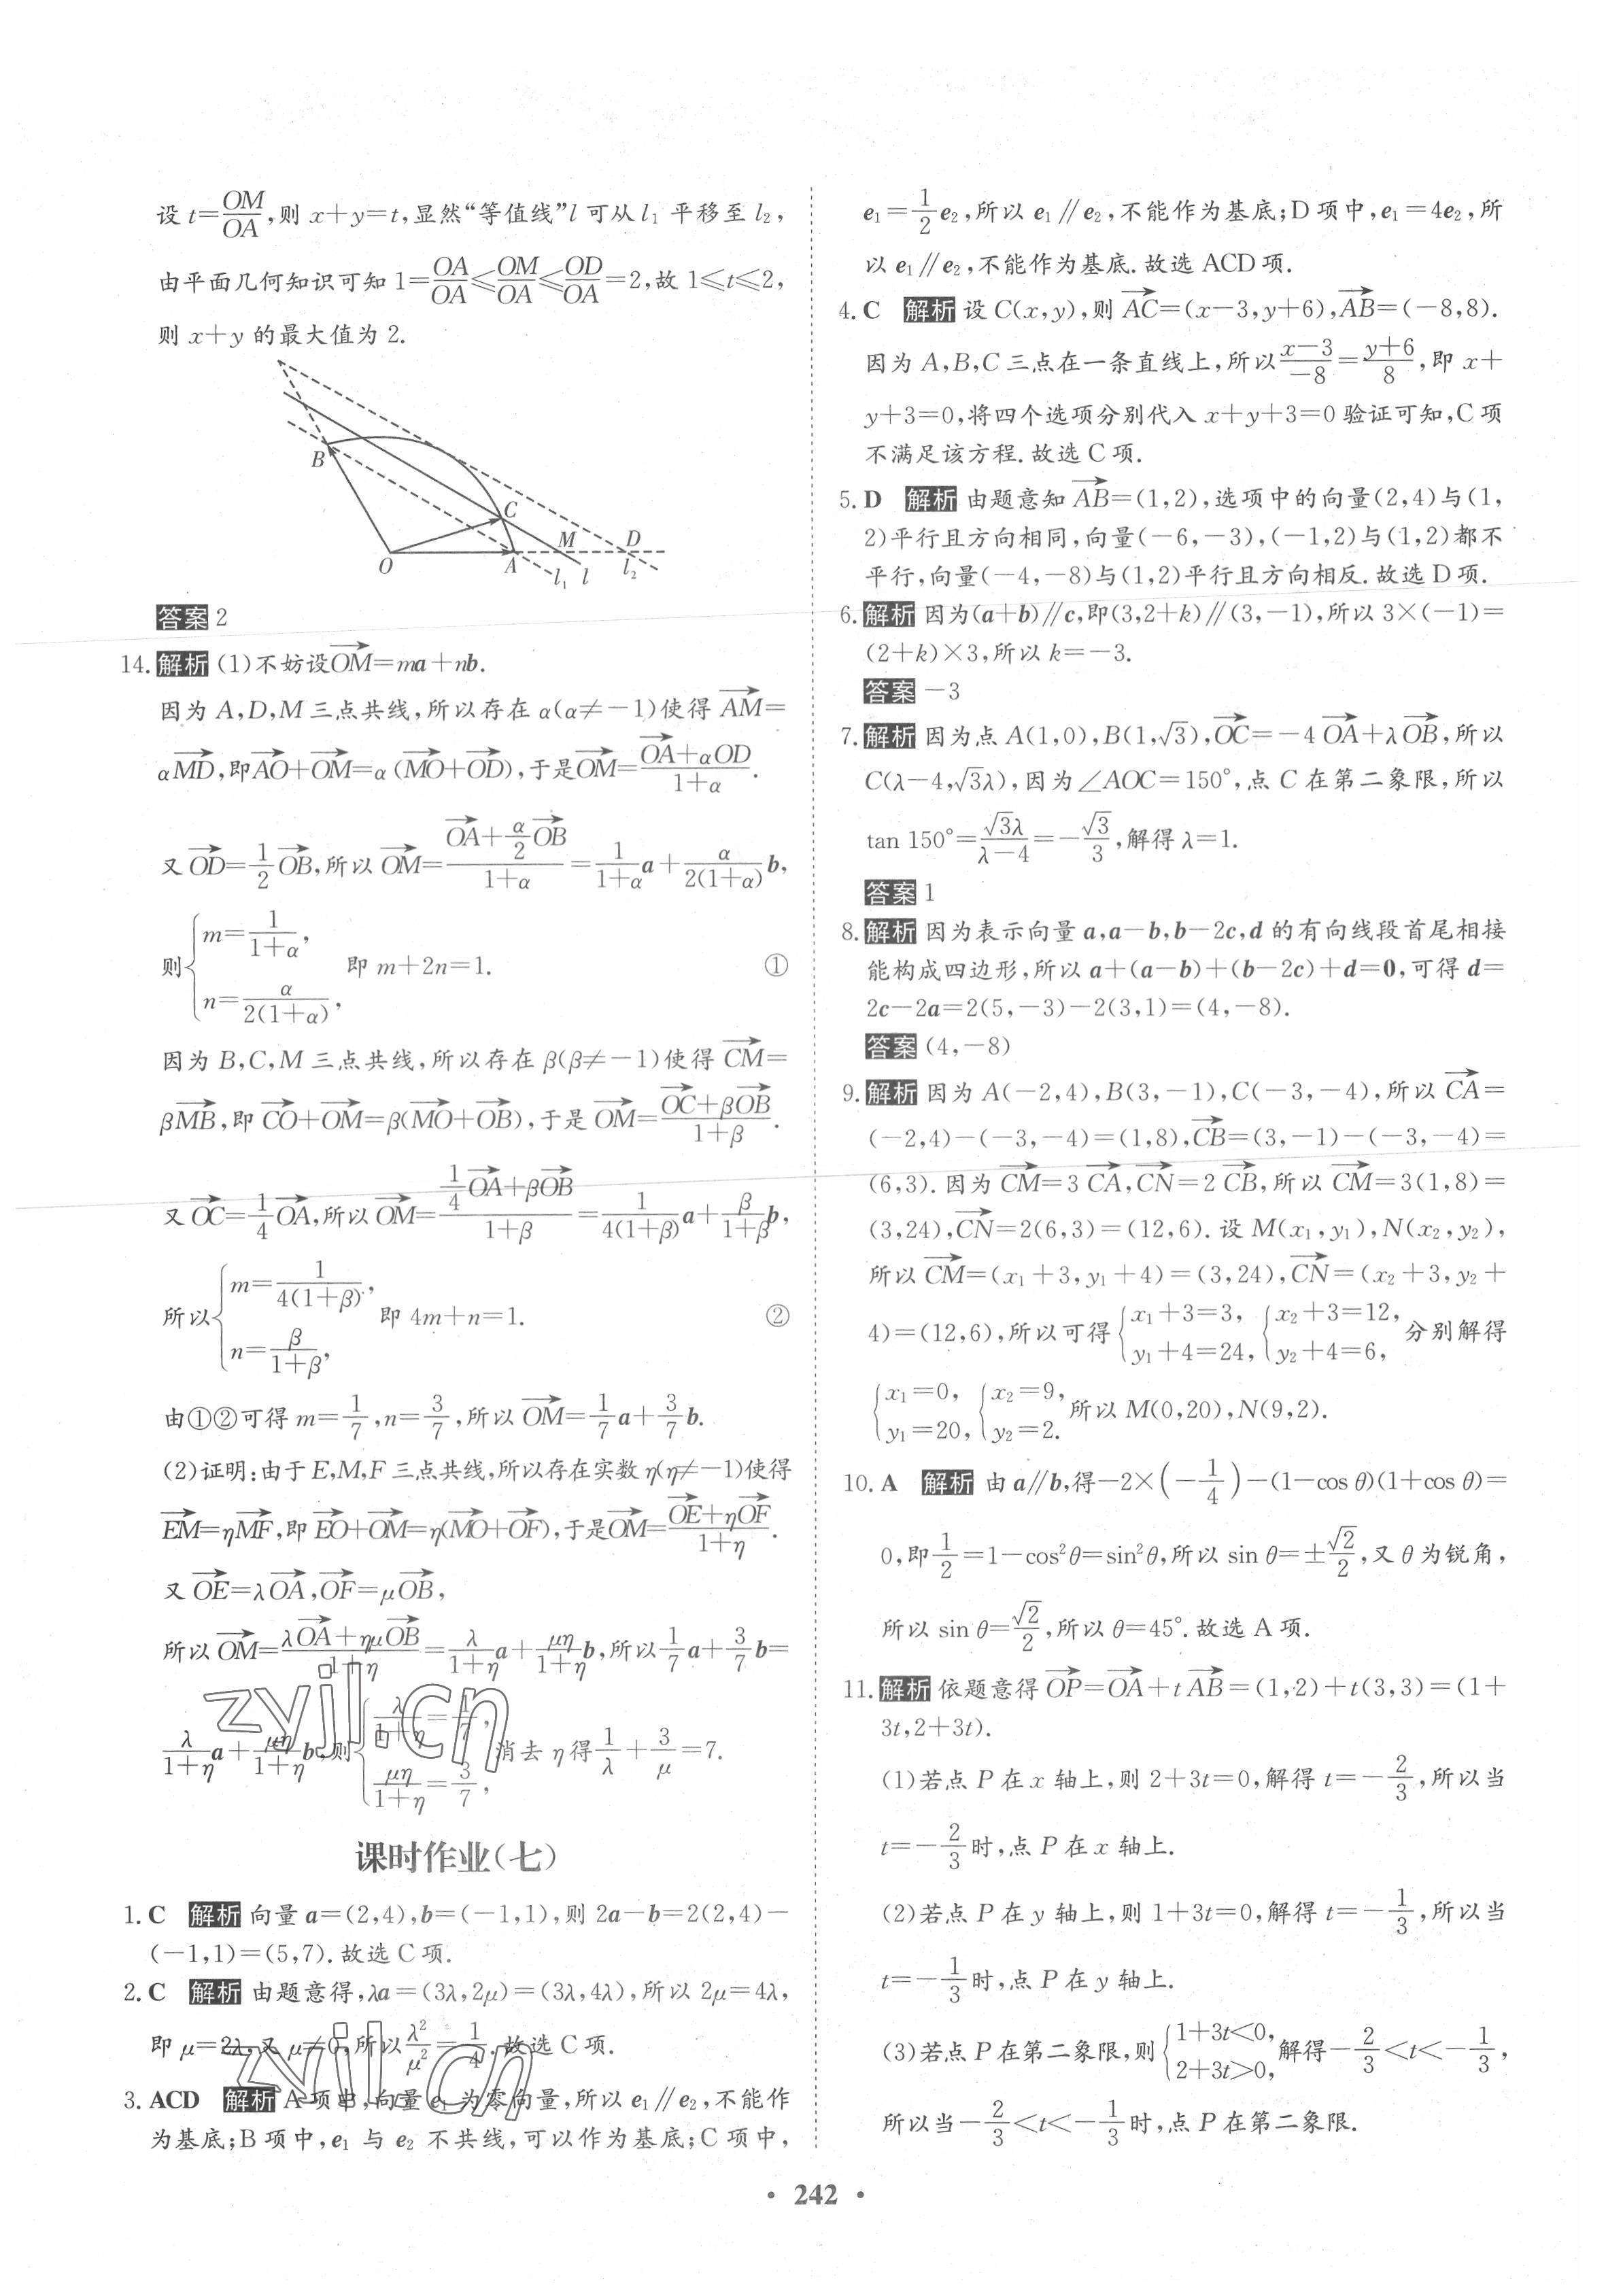 设 t=OM/OA,则 x+y=t,显然“等值线”l 可从 l₁ 平移至 l₂,
由平面几何知识可知 1=OA/OA≤OM/OA≤OD/OA=2,故 1≤t≤2,
则 x+y 的最大值为 2.
B
C
M
D
O
A
l₁
l
l₂
答案 2
14. 解析 (1)不妨设OM→=ma+nb.
因为 A,D,M 三点共线,所以存在 α(α≠-1)使得 AM→=
αMD→,即AO→+OM→=α(MO→+OD→),于是OM→=(OA→+αOD→)/(1+α).
又 OD→=1/2 OB→,所以 OM→=(OA→+α/2 OB→)/(1+α)=1/(1+α) a+α/(2(1+α)) b,
则{m=1/(1+α), n=α/(2(1+α)), 即 m+2n=1. ①
因为 B,C,M 三点共线,所以存在 β(β≠-1)使得 CM→=
βMB→,即 CO→+OM→=β(MO→+OB→),于是 OM→=(OC→+βOB→)/(1+β).
又 OC→=1/4 OA→,所以 OM→=(1/4 OA→+βOB→)/(1+β)=1/(4(1+β)) a+β/(1+β) b,
所以{m=1/(4(1+β)), n=β/(1+β), 即 4m+n=1. ②
由①②可得 m=1/7,n=3/7,所以 OM→=1/7 a+3/7 b.
(2)证明:由于 E,M,F 三点共线,所以存在实数 η(η≠-1)使得
EM→=ηMF→,即 EO→+OM→=η(MO→+OF→),于是OM→=(OE→+ηOF→)/(1+η).
又 OE→=λOA→,OF→=μOB→,
所以 OM→=(λOA→+ημOB→)/(1+η)=λ/(1+η) a+μη/(1+η) b,所以 1/7 a+3/7 b=
λ/(1+η) a+μη/(1+η) b,则{λ/(1+η)=1/7, μη/(1+η)=3/7, 消去 η 得 1/λ+3/μ=7.
课时作业(七)
1. C 解析 向量 a=(2,4),b=(-1,1),则 2a-b=2(2,4)-
(-1,1)=(5,7).故选 C 项.
2. C 解析 由题意得,λa=(3λ,2μ)=(3λ,4λ),所以 2μ=4λ,
即 μ=2λ,又 μ≠0,所以 λ²/μ²=1/4.故选 C 项.
3. ACD 解析 A 项中,向量 e₁ 为零向量,所以 e₁∥e₂,不能作
为基底;B 项中,e₁ 与 e₂ 不共线,可以作为基底;C 项中,
e₁=1/2 e₂,所以 e₁∥e₂,不能作为基底;D 项中,e₁=4e₂,所
以 e₁∥e₂,不能作为基底.故选 ACD 项.
4. C 解析 设 C(x,y),则 AC→=(x-3,y+6),AB→=(-8,8).
因为 A,B,C 三点在一条直线上,所以 (x-3)/(-8)=(y+6)/8,即 x+
y+3=0,将四个选项分别代入 x+y+3=0 验证可知,C 项
不满足该方程.故选 C 项.
5. D 解析 由题意知 AB→=(1,2),选项中的向量(2,4)与(1,
2)平行且方向相同,向量(-6,-3),(-1,2)与(1,2)都不
平行,向量(-4,-8)与(1,2)平行且方向相反.故选 D 项.
6. 解析 因为(a+b)∥c,即(3,2+k)∥(3,-1),所以 3×(-1)=
(2+k)×3,所以 k=-3.
答案 -3
7. 解析 因为点 A(1,0),B(1,√3),OC→=-4OA→+λOB→,所以
C(λ-4,√3λ),因为∠AOC=150°,点 C 在第二象限,所以
tan 150°=√3λ/(λ-4)=-√3/3,解得 λ=1.
答案 1
8. 解析 因为表示向量 a,a-b,b-2c,d 的有向线段首尾相接
能构成四边形,所以 a+(a-b)+(b-2c)+d=0,可得 d=
2c-2a=2(5,-3)-2(3,1)=(4,-8).
答案 (4,-8)
9. 解析 因为 A(-2,4),B(3,-1),C(-3,-4),所以 CA→=
(-2,4)-(-3,-4)=(1,8),CB→=(3,-1)-(-3,-4)=
(6,3).因为 CM→=3CA→,CN→=2CB→,所以 CM→=3(1,8)=
(3,24),CN→=2(6,3)=(12,6).设 M(x₁,y₁),N(x₂,y₂),
所以 CM→=(x₁+3,y₁+4)=(3,24),CN→=(x₂+3,y₂+
4)=(12,6),所以可得{x₁+3=3, y₁+4=24, {x₂+3=12, y₂+4=6, 分别解得
{x₁=0, y₁=20, {x₂=9, y₂=2. 所以 M(0,20),N(9,2).
10. A 解析 由 a∥b,得-2×(-1/4)-(1-cos θ)(1+cos θ)=
0,即 1/2=1-cos²θ=sin²θ,所以 sin θ=±√2/2,又 θ 为锐角,
所以 sin θ=√2/2,所以 θ=45°.故选 A 项.
11. 解析 依题意得 OP→=OA→+tAB→=(1,2)+t(3,3)=(1+
3t,2+3t).
(1)若点 P 在 x 轴上,则 2+3t=0,解得 t=-2/3,所以当
t=-2/3时,点 P 在 x 轴上.
(2)若点 P 在 y 轴上,则 1+3t=0,解得 t=-1/3,所以当
t=-1/3时,点 P 在 y 轴上.
(3)若点 P 在第二象限,则{1+3t<0, 2+3t>0, 解得-2/3<t<-1/3,
所以当-2/3<t<-1/3时,点 P 在第二象限.
zyjl.cn
zyjl.cn
• 242 •